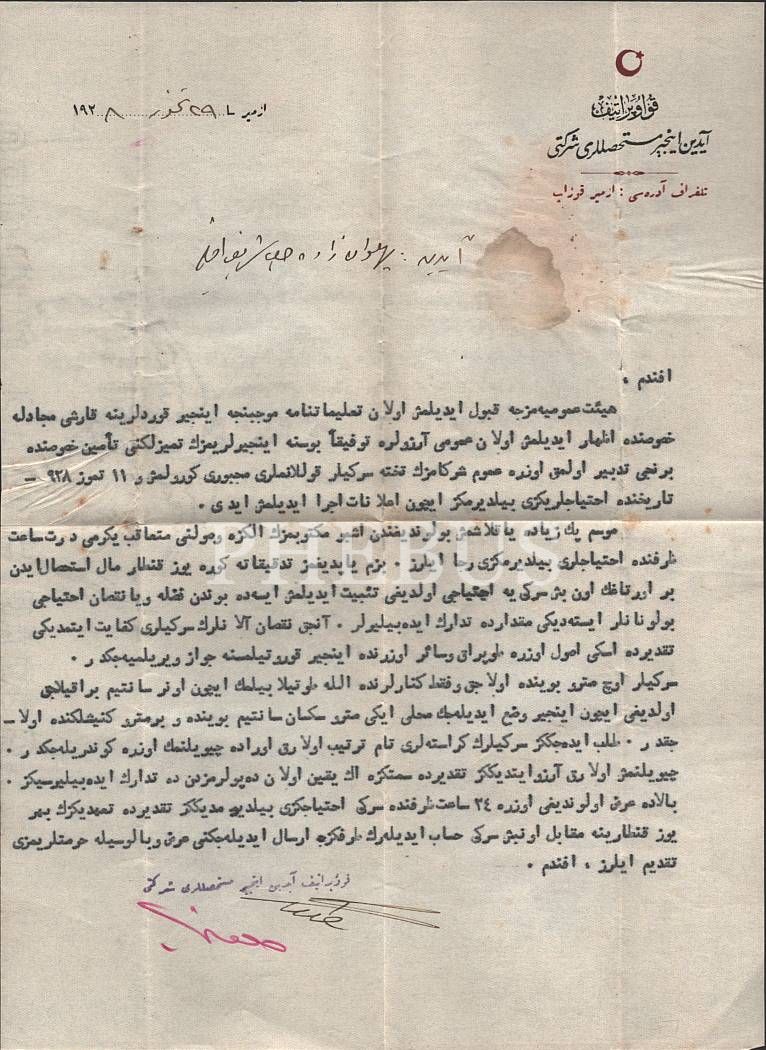 قوأوپراتیف
آیدین اینجیر مستحصللری شركتی
تلغراف آدره‌سی : ازمیر قوزاب
ازمیر ٢٩ تموز ١٩٢٨
آیدین : پهلوان زاده شریف
افندم ،
هیئت عمومیه‌مزجه قبول ایدیلمش اولان تعلیماتنامه موجبنجه اینجیر قوردلرینه قارشی مجادله
خصوصنده اظهار ایدیلمش اولان عمومی آرزولره توفیقاً بوسنه اینجیرلریمزك تمیزلكنی تأمین خصوصنده
برنجی تدبیر اولمق اوزره عموم شركامزك تخته سركیلر قوللانملری مجبوری كورولمش و ١١ تموز ٩٢٨ –
تاریخنده احتیاجلریكزی بیلدیرمكز ایچون اعلانات اجرا ایدیلمش ایدی ٠
موسم پك زیاده یاقلاشمش بولوندیغندن اشبو مكتوبمزك الكزه وصولنی متعاقب یكرمی درت ساعت
ظرفنده احتیاجلری بیلدیرمكزی رجا ایلرز ٠ بزم یاپدیغمز تدقیقاته كوره یوز قنطار مال استحصال ایدن
بر اورتاغك اون بش سركی یه احتیاجی اولدیغی تثبیت ایدیلمش ایسه‌ده بوندن فضله ویا نقصان احتیاجی
بولونانلر ایسته‌دیكی مقدارده تدارك ایده‌بیلیرلر ٠ آنجق نقصان آلانلرك سركیلری كفایت ایتمدیكی
تقدیرده اسكی اصول اوزره طوپراق وسائر اوزرنده اینجیر قوروتیلمسنه جواز ویریلمیه‌جكدر ٠
سركیلر اوچ مترو بوینده اولاجق وفقط كنارلرنده الله طوتیلا بیلمك ایچون اونر سانتیم براقیلاجق
اولدیغی ایچون اینجیر وضع ایدیله‌جك محلی ایكی مترو سكسان سانتیم بوینده و برمترو كنیشلكنده اولا –
جقدر ٠ طلب ایده‌جككز سركیلرك كراسته‌لری تام ترتیب اولارق اوراده چیویلنمك اوزره كوندریله‌جكدر ٠
چیویلنمش اولارق آرزو ایتدیككز تقدیرده سمتكزه اك یقین اولان ده‌پولرمزدن ده تدارك ایده‌بیلیرسیكز ٠
بالاده عرض اولوندیغی اوزره ٢٤ ساعت ظرفنده سركی احتیاجكزی بیلدیرمدیككز تقدیرده تعهدیكزك بهر
یوز قنطارینه مقابل اونبش سركی حساب ایدیله‌رك طرفكزه ارسال ایدیله‌جكنی عرض وبالوسیله حرمتلریمزی
تقدیم ایلرز ، افندم ٠
قوئوپراتیف آیدین اینجیر مستحصللری شركتی
PHEBUS